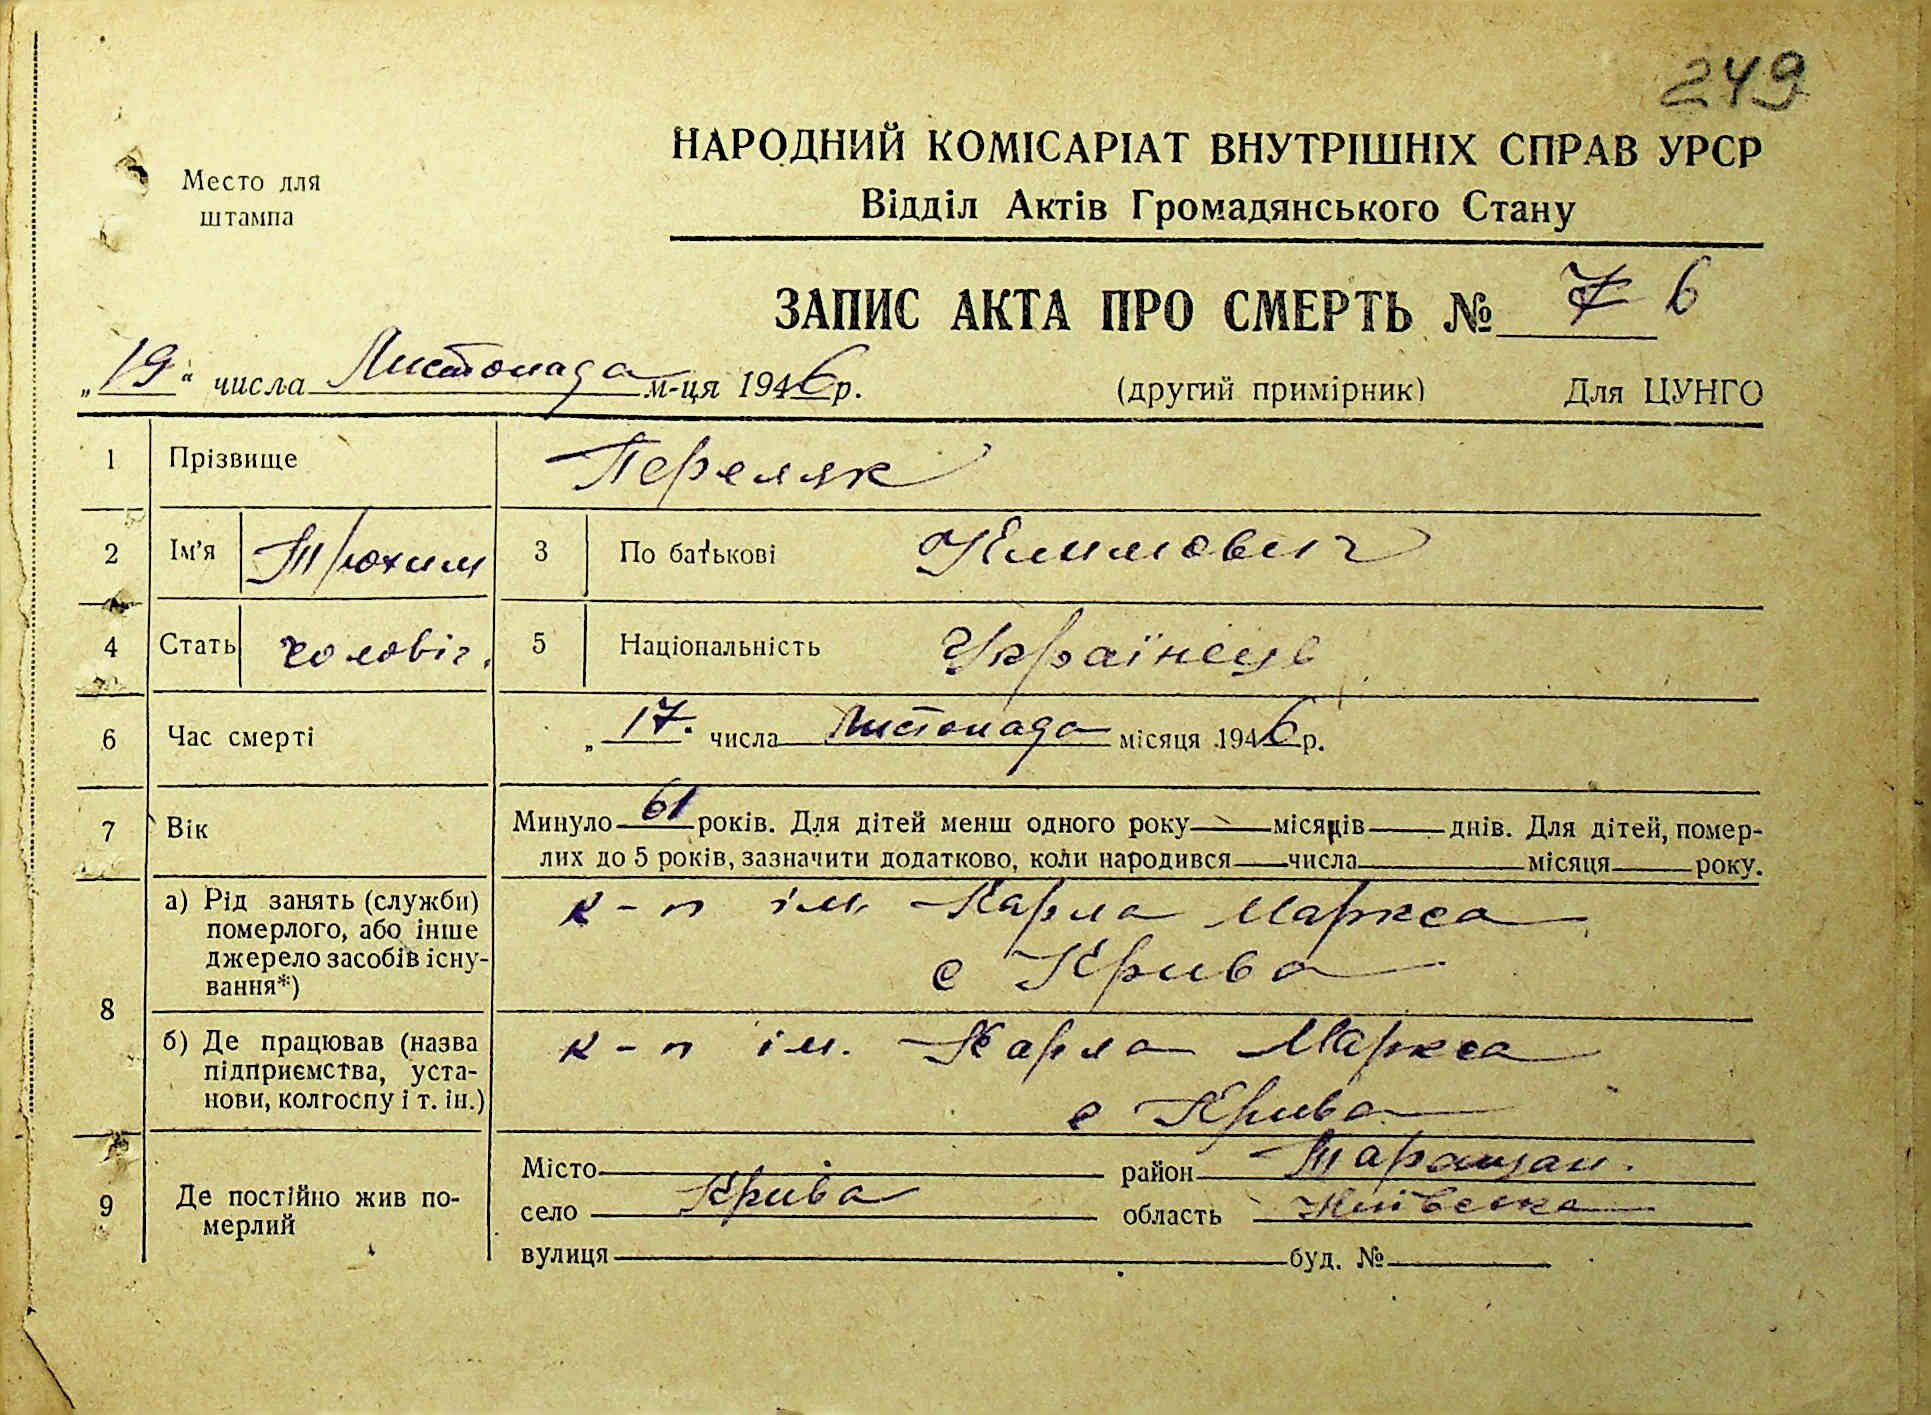 249
НАРОДНИЙ КОМІСАРІАТ ВНУТРІШНІХ СПРАВ УРСР
Место для
штампа
Відділ Актів Громадянського Стану
ЗАПИС АКТА ПРО СМЕРТЬ № 76
„19“ числа Листопада м-ця 1946 р. (другий примірник) Для ЦУНГО
1 Прізвище Переляк
2 Ім'я Трохим 3 По батькові Климович
4 Стать чоловіч. 5 Національність Українець
6 Час смерті „17. числа Листопада місяця 1946 р.
7 Вік Минуло 61 років. Для дітей менш одного року — місяців — днів. Для дітей, помер-
лих до 5 років, зазначити додатково, коли народився — числа — місяця — року.
8 а) Рід занять (служби) к-п ім. Карла Маркса
померлого, або інше
джерело засобів існу- с Крива
вання*)
б) Де працював (назва к-п ім. Карла Маркса
підприємства, уста-
нови, колгоспу і т. ін.) с Крива
9 Де постійно жив по-
мерлий
Місто — район Таращан.
село Крива область Київська
вулиця — буд. № —